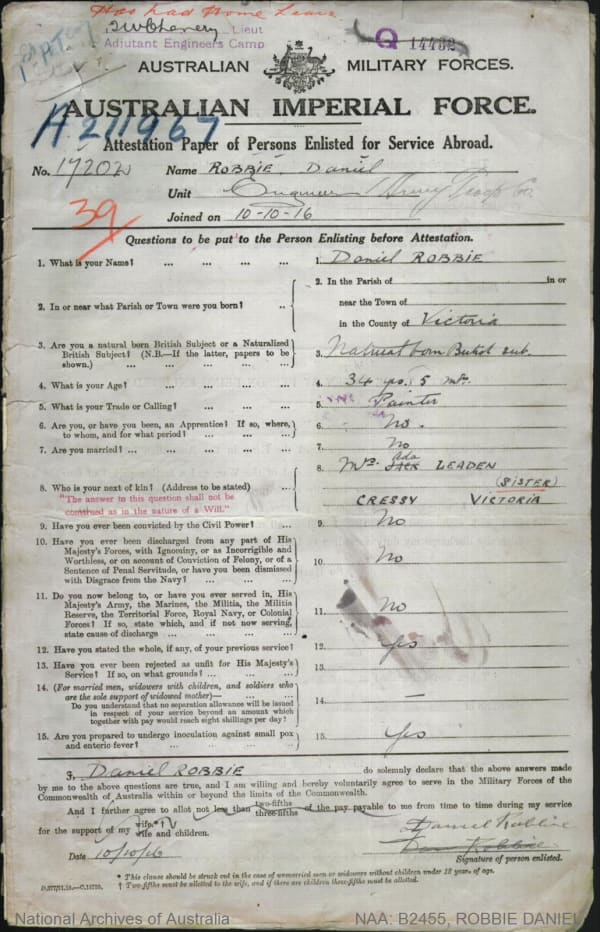 Has had Home Leave
Lieut
Adjutant Engineers Camp
Q 14432
AUSTRALIAN MILITARY FORCES.
AUSTRALIAN IMPERIAL FORCE.
A 211967
Attestation Paper of Persons Enlisted for Service Abroad.
No. 17202 Name ROBBIE, Daniel
Unit Engineer
39
Joined on 10-10-16
Questions to be put to the Person Enlisting before Attestation.
1. What is your Name? ... ... ... ... 1. Daniel ROBBIE
2. In or near what Parish or Town were you born? .. 2. In the Parish of in or
near the Town of
in the County of Victoria
3. Are you a natural born British Subject or a Naturalized
British Subject? (N.B.—If the latter, papers to be
shown.) ... ... ... ... ... 3. Natural born British sub.
4. What is your Age? ... ... ... ... 4. 34 yrs. 5 mths.
5. What is your Trade or Calling? ... ... ... 5. Painter
6. Are you, or have you been, an Apprentice? If so, where,
to whom, and for what period? ... ... ... 6. No.
7. Are you married? ... ... ... ... ... 7. No
8. Who is your next of kin? (Address to be stated) ... 8. Mrs. Ada Jack LEADEN
(SISTER)
"The answer to this question shall not be
construed as in the nature of a Will."
CRESSY VICTORIA
9. Have you ever been convicted by the Civil Power? ... 9. No
10. Have you ever been discharged from any part of His
Majesty's Forces, with Ignominy, or as Incorrigible and
Worthless, or on account of Conviction of Felony, or of a
Sentence of Penal Servitude, or have you been dismissed
with Disgrace from the Navy? ... ... ... 10. No
11. Do you now belong to, or have you ever served in, His
Majesty's Army, the Marines, the Militia, the Militia
Reserve, the Territorial Force, Royal Navy, or Colonial
Forces? If so, state which, and if not now serving,
state cause of discharge ... ... ... ... 11. No
12. Have you stated the whole, if any, of your previous service? 12. Yes
13. Have you ever been rejected as unfit for His Majesty's
Service? If so, on what grounds? ... ... ... 13.
14. (For married men, widowers with children, and soldiers who
are the sole support of widowed mother)—
Do you understand that no separation allowance will be issued
in respect of your service beyond an amount which
together with pay would reach eight shillings per day? 14. —
15. Are you prepared to undergo inoculation against small pox
and enteric fever? ... ... ... ... 15. Yes
I, Daniel ROBBIE do solemnly declare that the above answers made
by me to the above questions are true, and I am willing and hereby voluntarily agree to serve in the Military Forces of the
Commonwealth of Australia within or beyond the limits of the Commonwealth.
And I further agree to allot not less than two-fifths three-fifths of the pay payable to me from time to time during my service
for the support of my wife.* wife and children.
Daniel Robbie
Dan Robbie
Date 10/10/16 Signature of person enlisted.
* This clause should be struck out in the case of unmarried men or widowers without children under 18 years of age.
† Two-fifths must be allotted to the wife, and if there are children three-fifths must be allotted.
National Archives of Australia NAA: B2455, ROBBIE DANIEL